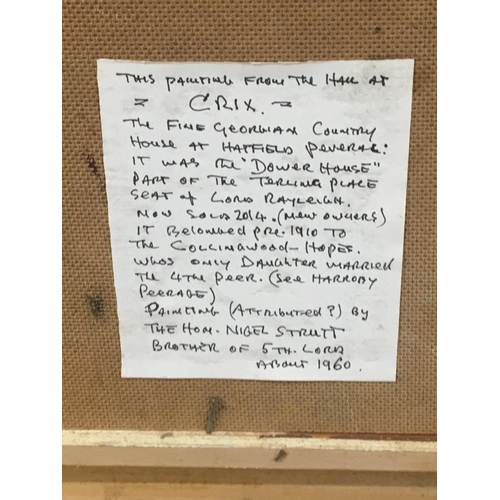 THIS PAINTING FROM THE HALL AT
= CRIX. =
THE FINE GEORGIAN COUNTRY
HOUSE AT HATFIELD PEVERAL:
IT WAS THE "DOWER HOUSE"
PART OF THE TERLING PLACE
SEAT of LORD RAYLEIGH.
NOW SOLD 2014. (NEW OWNERS)
IT BELONGED PRE. 1910 TO
THE COLLINGWOOD - HOPES.
WHOS ONLY DAUGHTER MARRIED
THE 4TH PEER. (SEE HARROBY
PEERAGE)
PAINTING (ATTRIBUTED?) BY
THE HON. NIGEL STRUTT
BROTHER OF 5TH. LORD
ABOUT 1960.